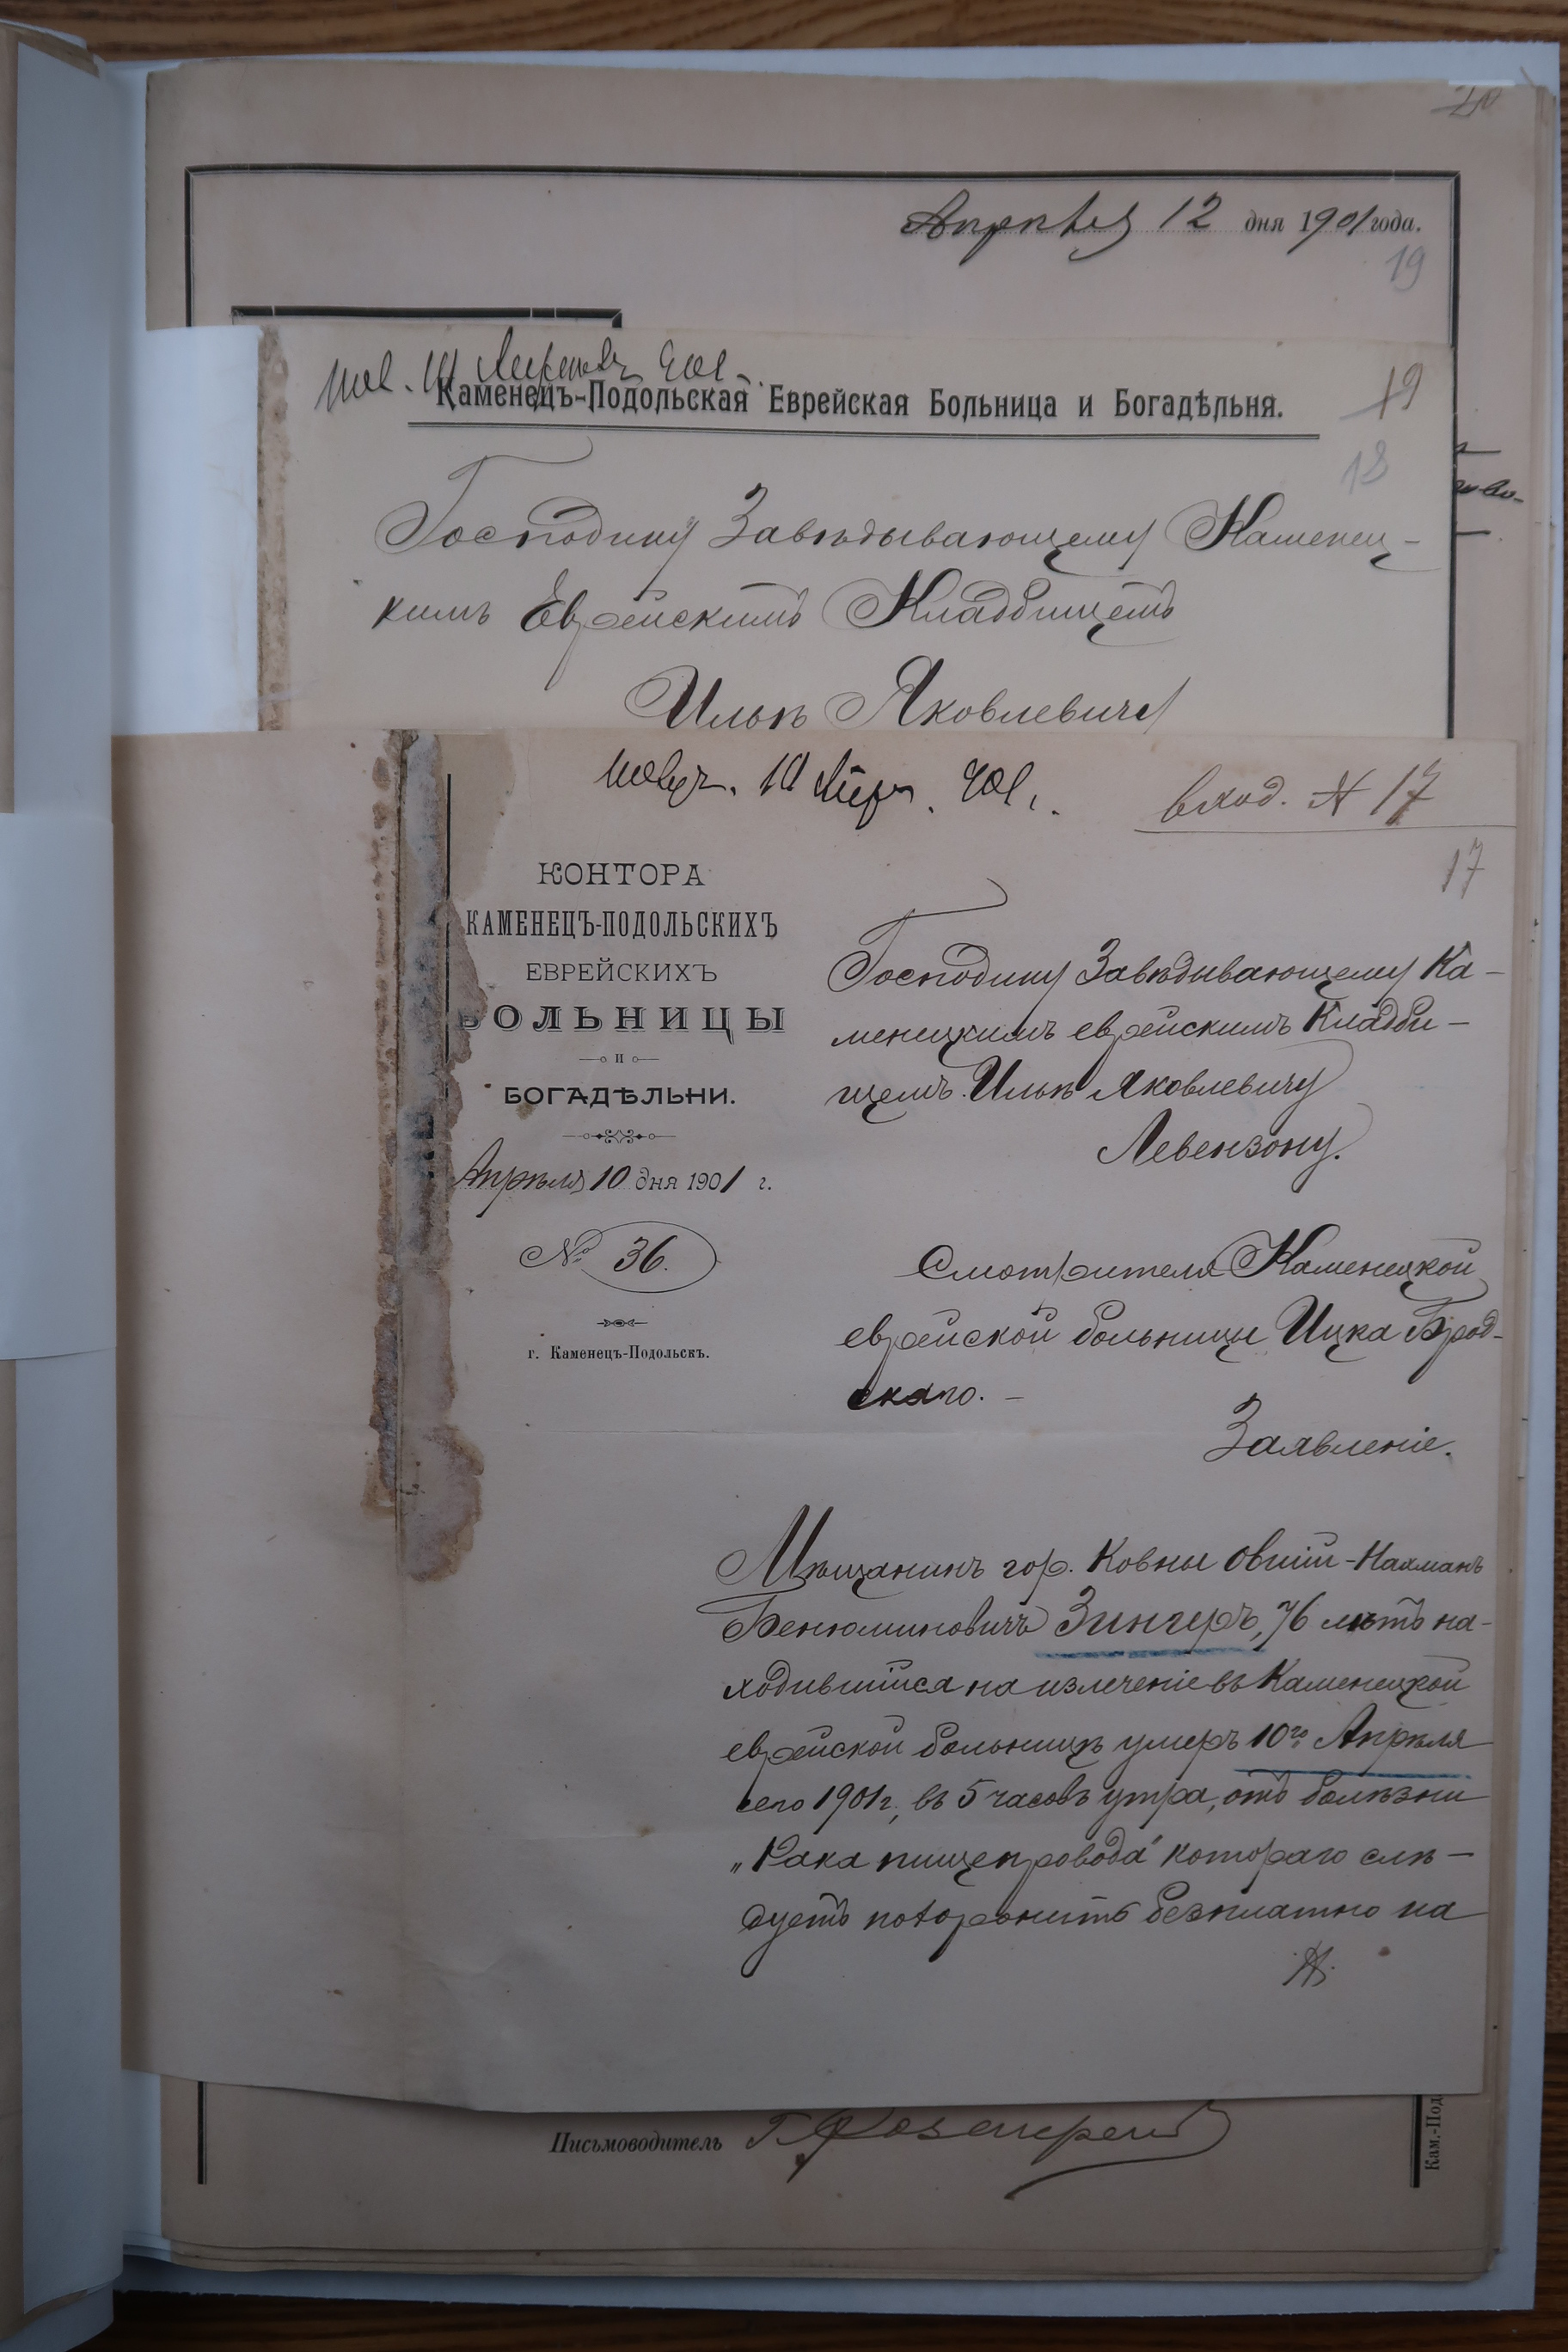 20
Апрѣля 12 дня 1901 года.
19
пол. 10 Апрѣля 901.
Каменецъ-Подольская Еврейская Больница и Богадѣльня.
19
18
Господину Завѣдывающему Каменец-
кимъ Еврейскимъ Кладбищемъ
Ильѣ Яковлевичу
10 Апр. 901 г.
вход. № 17
17
КОНТОРА
КАМЕНЕЦЪ-ПОДОЛЬСКИХЪ
ЕВРЕЙСКИХЪ
БОЛЬНИЦЫ
И
БОГАДѢЛЬНИ.
Апрѣля 10 дня 1901 г.
№ 36.
г. Каменецъ-Подольскъ.
Господину Завѣдывающему Ка-
менецкимъ еврейскимъ Кладби-
щемъ Ильѣ Яковлевичу
Левензону.
Смотрителя Каменецкой
еврейской больницы Ицка Брод-
скаго. —
Заявленіе.
Мѣщанинъ гор. Ковны Овшій-Нахманъ
Бенюминовичъ Зингеръ, 76 лѣтъ на-
ходившійся на излеченіе въ Каменецкой
еврейской больницѣ умеръ 10го Апрѣля
сего 1901 г., въ 5 часовъ утра, отъ болѣзни
„Рака пищепровода" котораго слѣ-
дуетъ похоронить безплатно на
Письмоводитель Г.
Кам.-Под